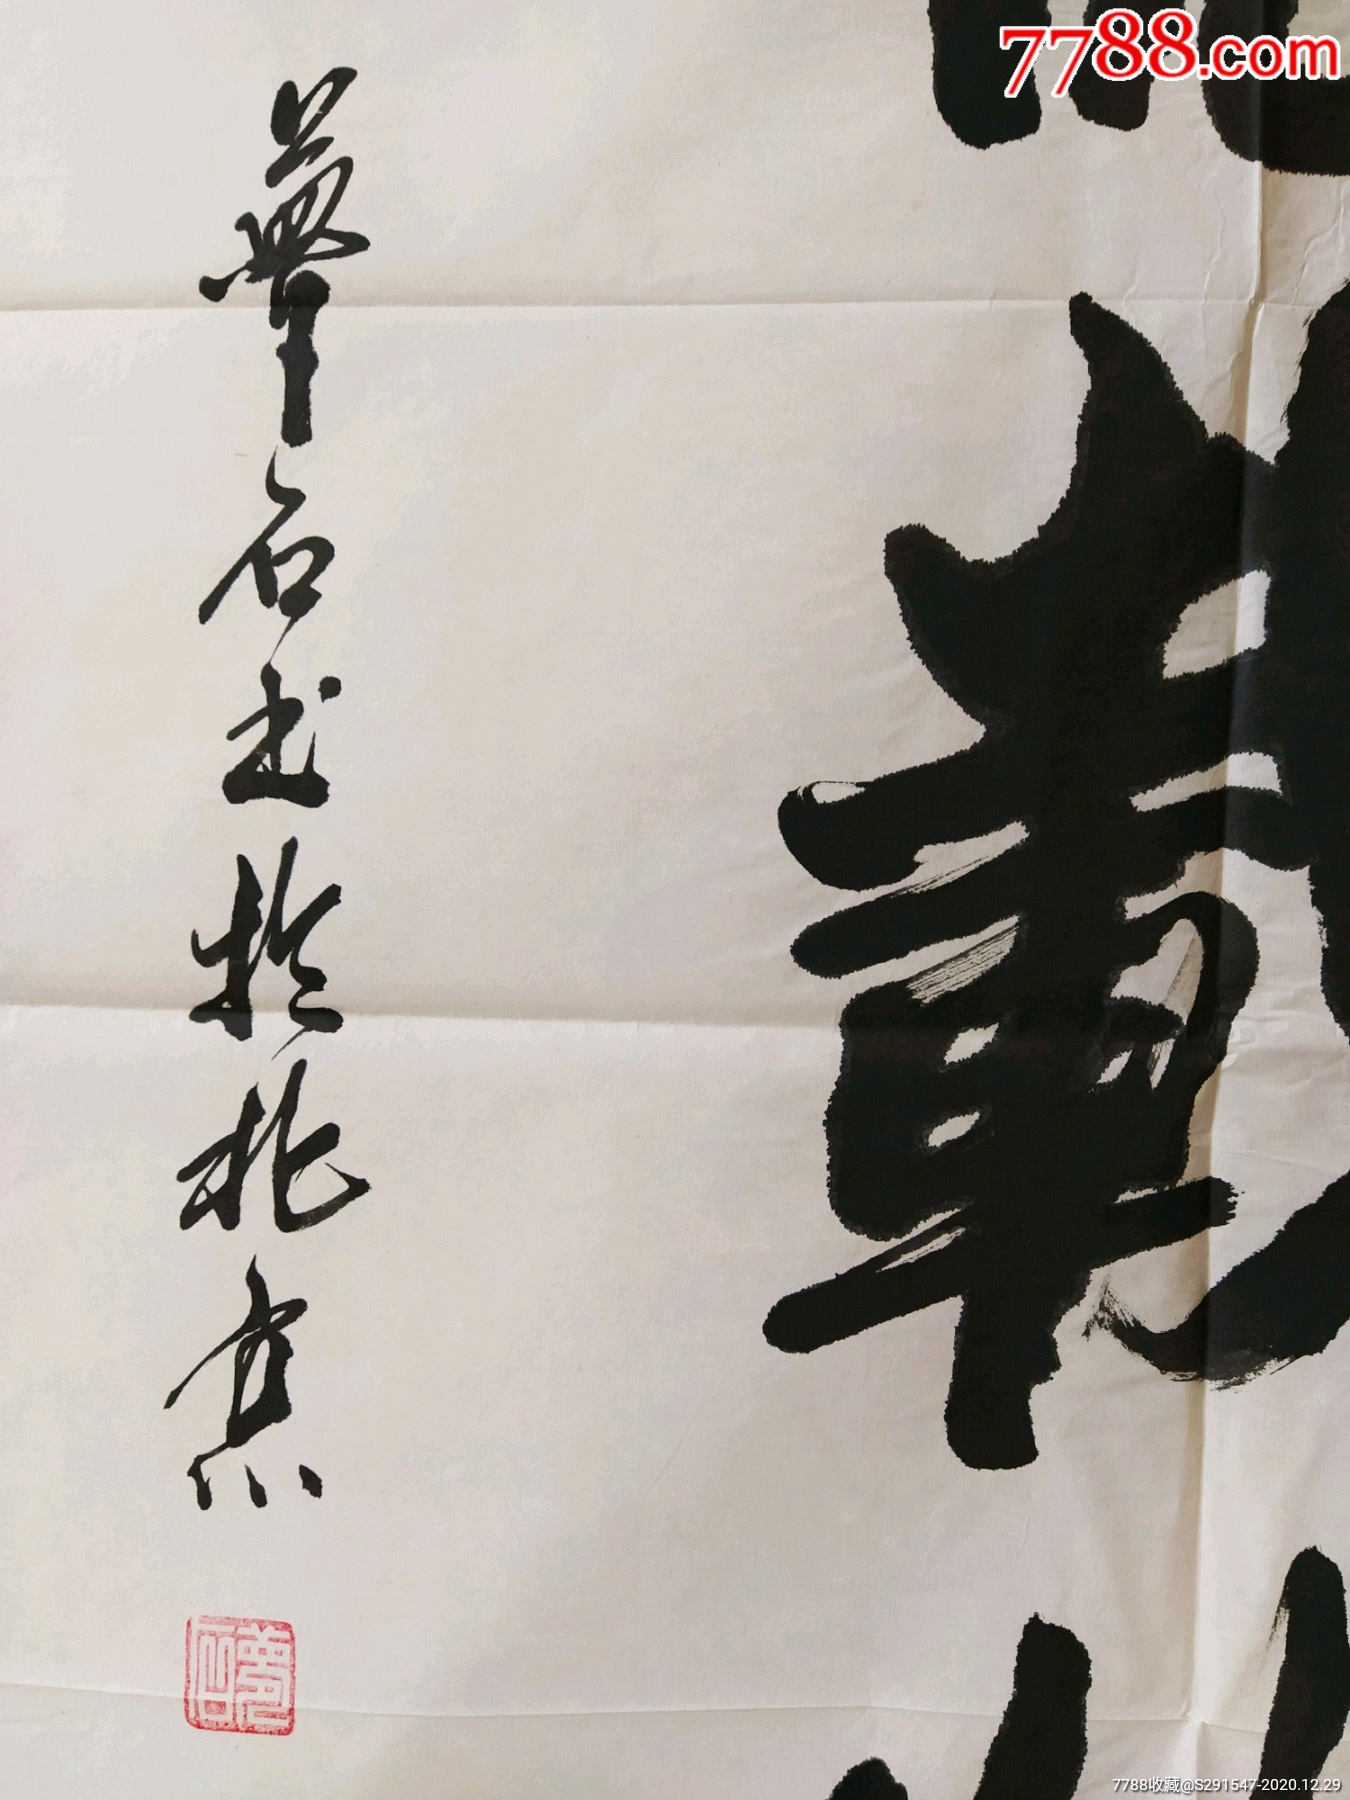 7788.com
載
夢石书於北京
7788收藏@S291547-2020.12.29